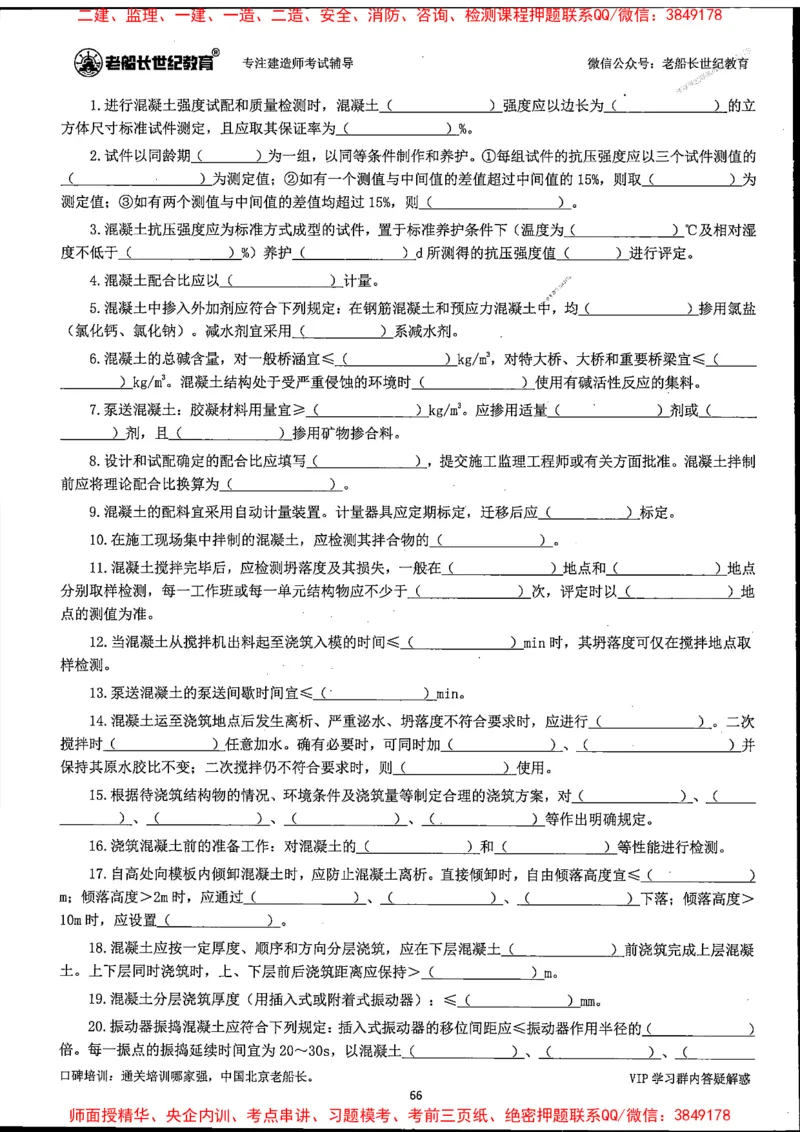 二建、监理、一建、一造、二造、安全、消防、咨询、检测课程押题联系QQ/微信：3849178
老船长世纪教育® 专注建造师考试辅导 微信公众号：老船长世纪教育
1.进行混凝土强度试配和质量检测时，混凝土（ ）强度应以边长为（ ）的立
方体尺寸标准试件测定，且应取其保证率为（ ）%。
2.试件以同龄期（ ）为一组，以同等条件制作和养护。①每组试件的抗压强度应以三个试件测值的
（ ）为测定值；②如有一个测值与中间值的差值超过中间值的 15%，则取（ ）为
测定值；③如有两个测值与中间值的差值均超过 15%，则（ ）。
3.混凝土抗压强度应为标准方式成型的试件，置于标准养护条件下（温度为（ ）℃及相对湿
度不低于（ ）%）养护（ ）d 所测得的抗压强度值（ ）进行评定。
4.混凝土配合比应以（ ）计量。
5.混凝土中掺入外加剂应符合下列规定：在钢筋混凝土和预应力混凝土中，均（ ）掺用氯盐
（氯化钙、氯化钠）。减水剂宜采用（ ）系减水剂。
6.混凝土的总碱含量，对一般桥涵宜≤（ ）kg/m³，对特大桥、大桥和重要桥梁宜≤（
）kg/m³。混凝土结构处于受严重侵蚀的环境时（ ）使用有碱活性反应的集料。
7.泵送混凝土：胶凝材料用量宜≥（ ）kg/m³。应掺用适量（ ）剂或（
）剂，且（ ）掺用矿物掺合料。
8.设计和试配确定的配合比应填写（ ），提交施工监理工程师或有关方面批准。混凝土拌制
前应将理论配合比换算为（ ）。
9.混凝土的配料宜采用自动计量装置。计量器具应定期标定，迁移后应（ ）标定。
10.在施工现场集中拌制的混凝土，应检测其拌合物的（ ）。
11.混凝土搅拌完毕后，应检测坍落度及其损失，一般在（ ）地点和（ ）地点
分别取样检测，每一工作班或每一单元结构物应不少于（ ）次，评定时以（ ）地
点的测值为准。
12.当混凝土从搅拌机出料起至浇筑入模的时间≤（ ）min 时，其坍落度可仅在搅拌地点取
样检测。
13.泵送混凝土的泵送间歇时间宜≤（ ）min。
14.混凝土运至浇筑地点后发生离析、严重泌水、坍落度不符合要求时，应进行（ ）。二次
搅拌时（ ）任意加水。确有必要时，可同时加（ ）、（ ）并
保持其原水胶比不变；二次搅拌仍不符合要求时，则（ ）使用。
15.根据待浇筑结构物的情况、环境条件及浇筑量等制定合理的浇筑方案，对（ ）、（
）、（ ）、（ ）、（ ）等作出明确规定。
16.浇筑混凝土前的准备工作：对混凝土的（ ）和（ ）等性能进行检测。
17.自高处向模板内倾卸混凝土时，应防止混凝土离析。直接倾卸时，自由倾落高度宜≤（ ）
m；倾落高度＞2m 时，应通过（ ）、（ ）、（ ）下落；倾落高度＞
10m 时，应设置（ ）。
18.混凝土应按一定厚度、顺序和方向分层浇筑，应在下层混凝土（ ）前浇筑完成上层混凝
土。上下层同时浇筑时，上、下层前后浇筑距离应保持＞（ ）m。
19.混凝土分层浇筑厚度（用插入式或附着式振动器）：≤（ ）mm。
20.振动器振捣混凝土应符合下列规定：插入式振动器的移位间距应≤振动器作用半径的（ ）
倍。每一振点的振捣延续时间宜为 20～30s，以混凝土（ ）、（ ）、（
口碑培训：通关培训哪家强，中国北京老船长。 VIP 学习群内答疑解惑
66
师面授精华、央企内训、考点串讲、习题模考、考前三页纸、绝密押题联系QQ/微信：3849178